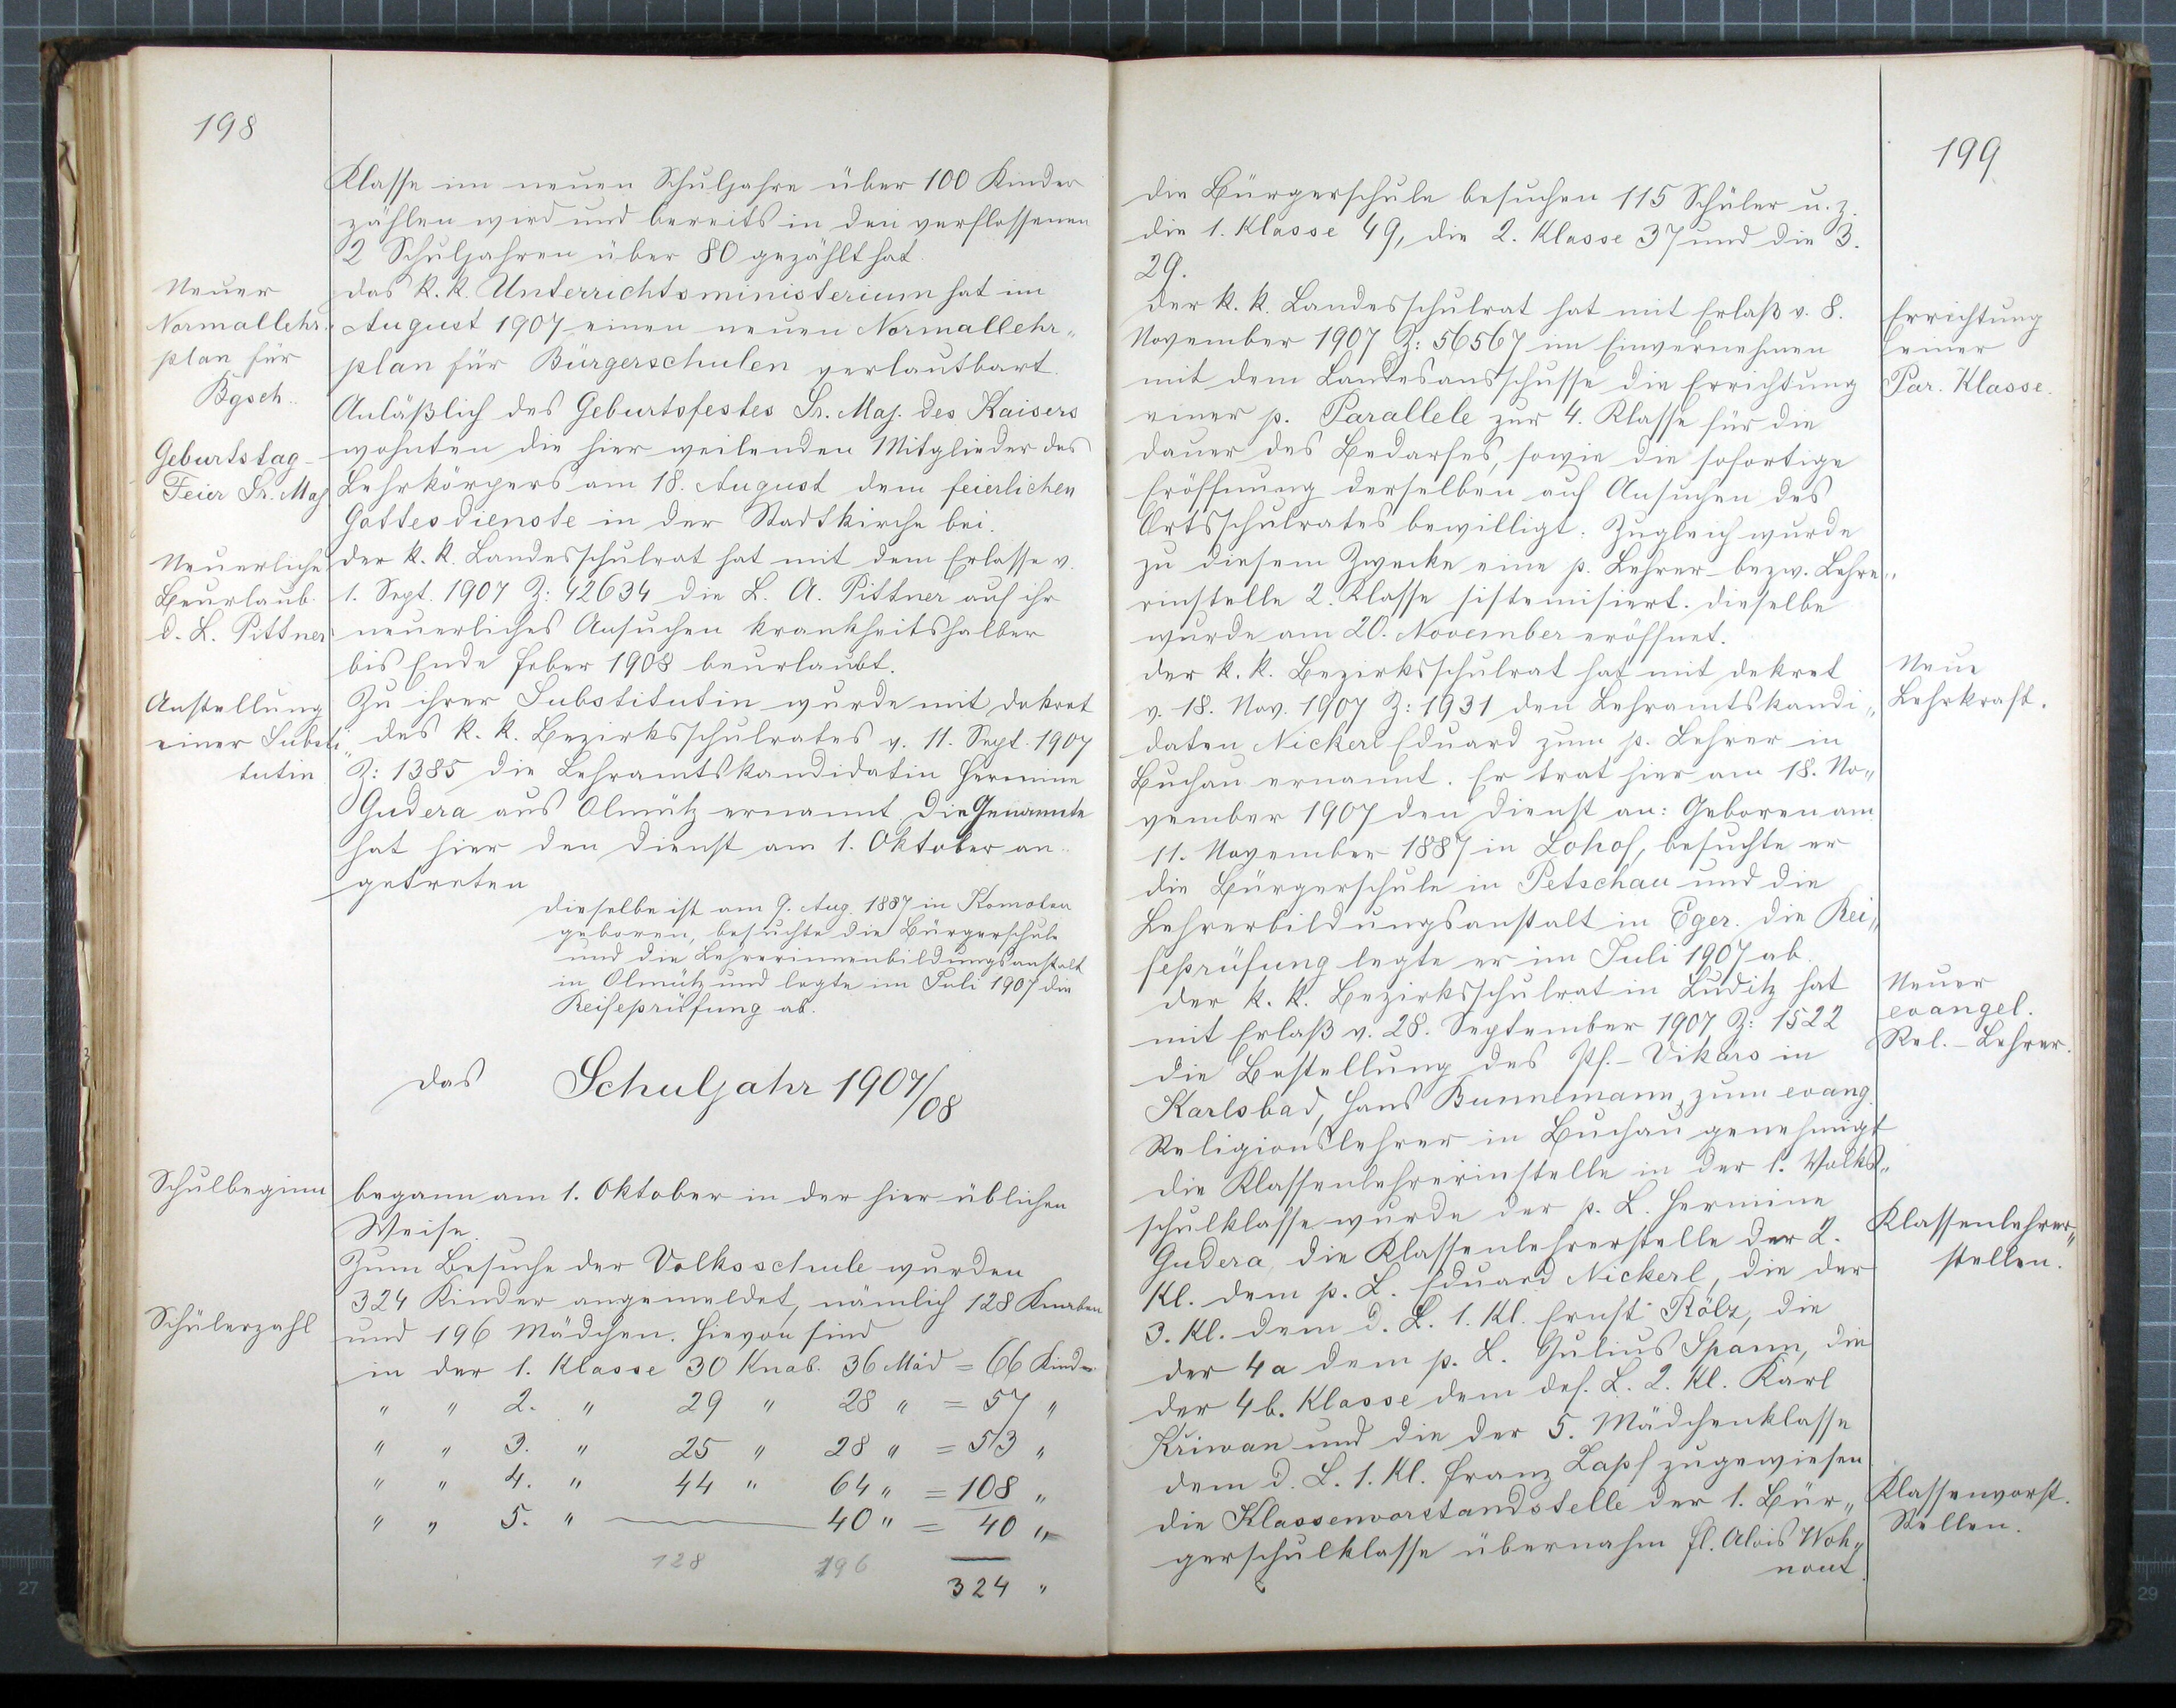 198
Klasse im neuen Schuljahre über 100 Kinder
zählen wird und bereits in den verflossenen
2 Schuljahren über 80 gezählt hat.
Neuer
Normallehr-
plan für
Bgsch.
Das k. k. Unterrichtsministerium hat im
August 1907 einen neuen Normallehr„
plan für Bürgerschulen verlautbart.
Anläßlich des Geburtsfestes Sr. Maj. des Kaisers
Geburtstag-
Feier Sr. Maj
wohnten die hier weilenden Mitglieder des
Lehrkörpers am 18. August dem feierlichen
Gottesdienste in der Stadtkirche bei.
Neuerliche
Beurlaub.
d. L. Pittner
Der k. k. Landesschulrat hat mit dem Erlasse v.
1. Sept. 1907 Z: 42634 die L. A. Pittner auf ihr
neuerliches Ansuchen krankheitshalber
bis Ende Feber 1908 beurlaubt.
Anstellung
einer Substi„
tutin
Zu ihrer Substitutin wurde mit Dekret
des k. k. Bezirksschulrates v. 11. Sept. 1907
Z: 1385 die Lehramtskandidatin Hermine
Gudera aus Olmütz ernannt. Die Genannte
hat hier den Dienst am 1. Oktober an„
getreten
Dieselbe ist am 9. Aug. 1887 in Komotau
geboren, besuchte die Bürgerschule
und die Lehrerinnenbildungsanstalt
in Olmütz und legte im Juli 1907 die
Reifeprüfung ab.
Das Schuljahr 1907/08
Schulbeginn
begann am 1. Oktober in der hier üblichen
Weise.
Zum Besuche der Volksschule wurden
Schülerzahl
324 Kinder angemeldet, nämlich 128 Knaben
und 196 Mädchen. Hievon sind
in der 1. Klasse 30 Knab. 36 Mäd = 66 Kinder
" " 2. " 29 " 28 " = 57 "
" " 3. " 25 " 28 " = 53 "
" " 4. " 44 " 64 " = 108 "
" " 5. " — 40 " = 40 "
128 196
324 "
199
Die Bürgerschule besuchen 115 Schüler u. z.
die 1. Klasse 49, die 2. Klasse 37 und die 3.
29.
Errichtung
einer
Par. Klasse.
Der k. k. Landesschulrat hat mit Erlaß v. 8.
November 1907 Z: 56567 im Einvernehmen
mit dem Landesausschusse die Errichtung
einer p. Parallele zur 4. Klasse für die
Dauer des Bedarfes, sowie die sofortige
Eröffnung derselben auf Ansuchen des
Ortsschulrates bewilligt. Zugleich wurde
zu diesem Zwecke eine p. Lehrer- bezw. Lehre„
rinstelle 2. Klasse sistemisiert. Dieselbe
wurde am 20. November eröffnet.
Neue
Lehrkraft.
Der k. k. Bezirksschulrat hat mit Dekret
v. 18. Nov. 1907 Z: 1931 den Lehramtskandi„
daten Nickerl Eduard zum p. Lehrer in
Buchau ernannt. Er trat hier am 18. No„
vember 1907 den Dienst an: Geboren am
11. November 1887 in Lohof, besuchte er
die Bürgerschule in Petschau und die
Lehrerbildungsanstalt in Eger. Die Rei„
feprüfung legte er im Juli 1907 ab.
Neuer
evangel.
Rel.-Lehrer.
Der k. k. Bezirksschulrat in Luditz hat
mit Erlaß v. 28. September 1907 Z: 1522
die Bestellung des Pf.-Vikars in
Karlsbad, Hans Bunnemann, zum evang.
Religionslehrer in Buchau genehmigt
Klassenlehrer„
stellen.
Die Klassenlehrerinstelle in der 1. Volks„
schulklasse wurde der p. L. Hermine
Gudera, die Klassenlehrerstelle der 2.
Kl. dem p. L. Eduard Nickerl, die der
3. Kl. dem d. L. 1. Kl. Ernst Rölz, die
der 4a dem p. L. Julius Spann, die
der 4b. Klasse dem def. L. 2. Kl. Karl
Kriwan und die der 5. Mädchenklasse
dem d. L. 1. Kl. Franz Zapf zugewiesen
Klassenvorst.
Stellen.
Die Klassenvorstandstelle der 1. Bür„
gerschulklasse übernahm Fl. Alois Woh„
nout.